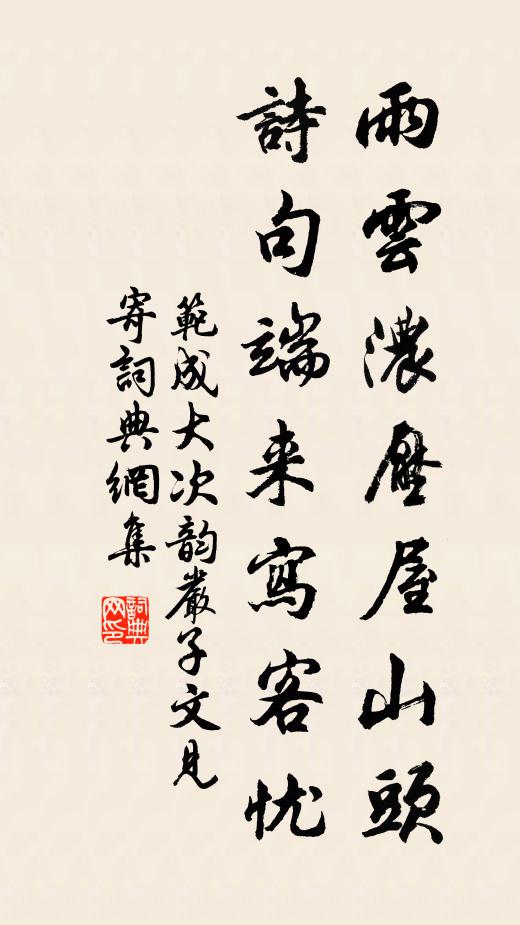 雨雲濃壓屋山頭
詩句端来寫客忧
範成大次韵嚴子文見
寄詞典網集
詞典
网印